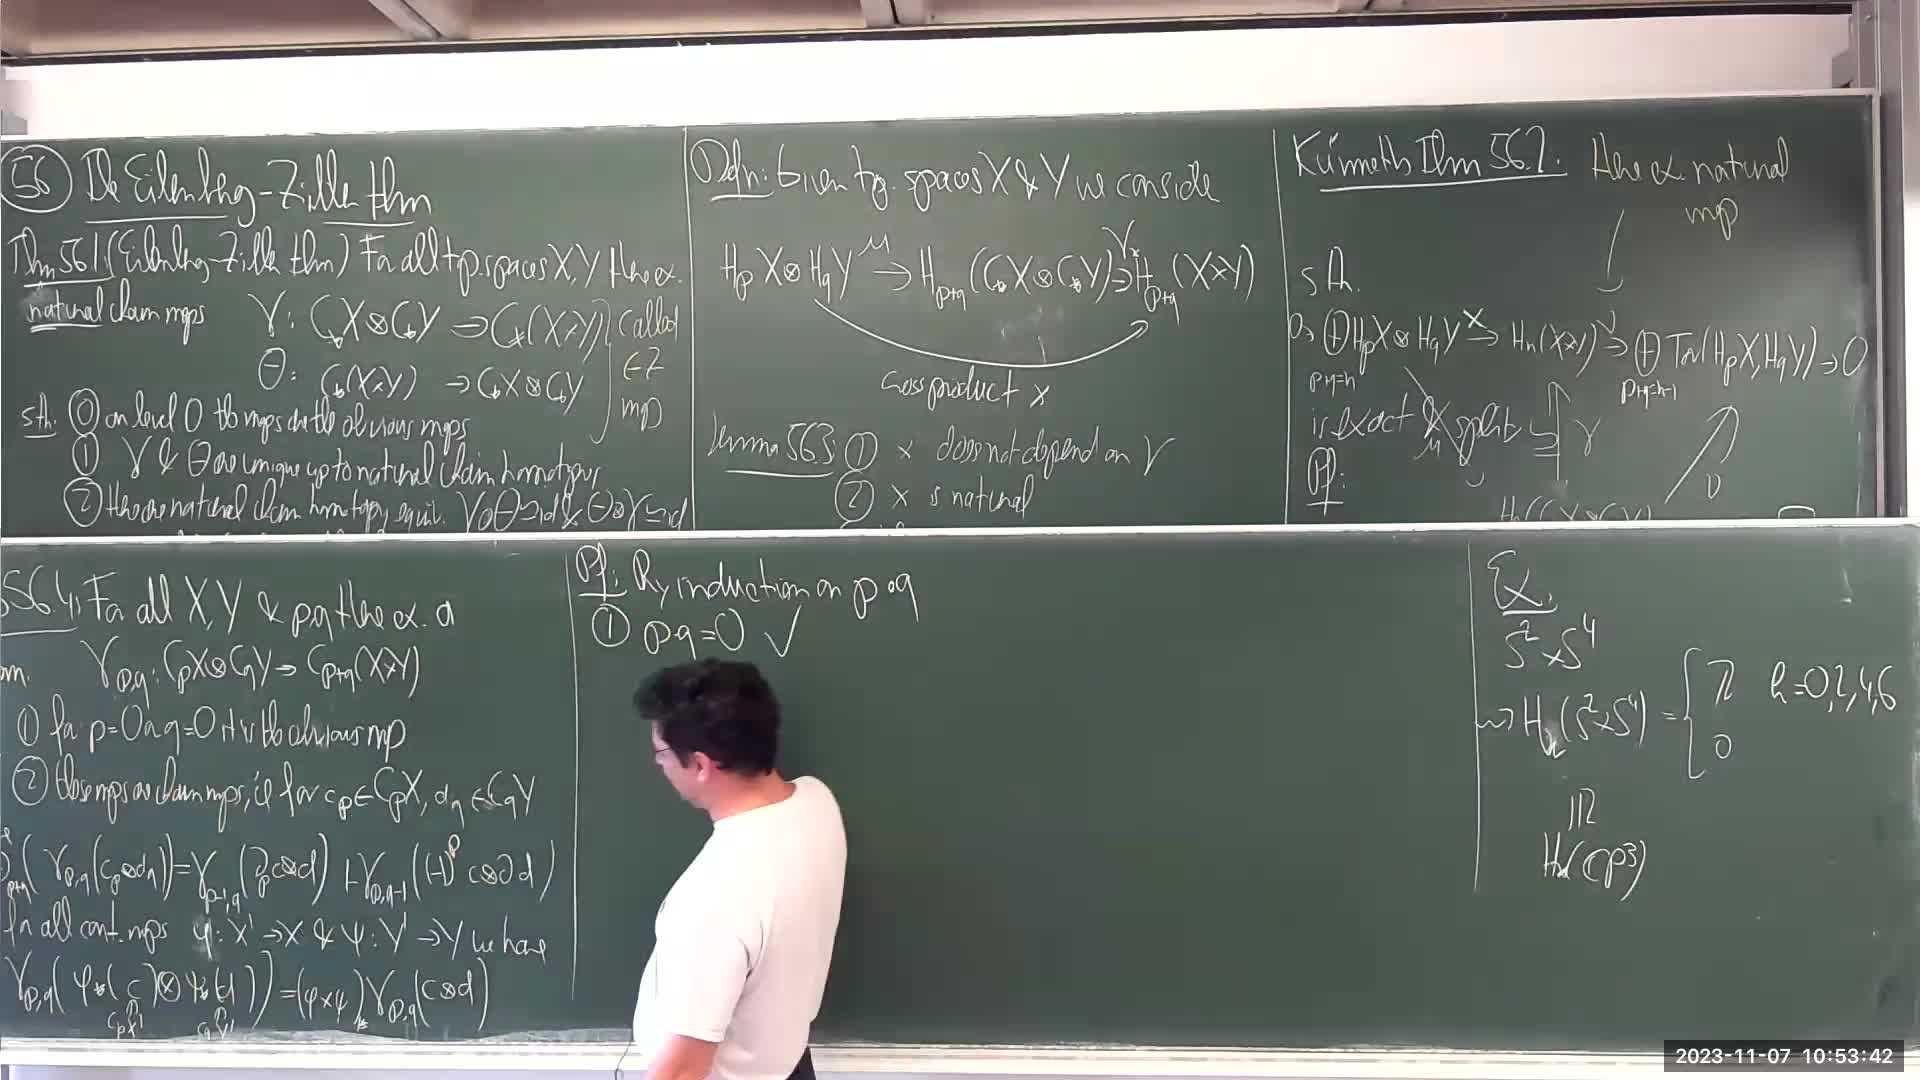 56 De Eilenberg-Zilber thm
Thm 56.1 (Eilenberg-Zilber thm) For all top. spaces X, Y there ex.
natural chain maps γ: C_*X⊗C_*Y → C_*(X×Y)
Θ: C_*(X×Y) → C_*X⊗C_*Y
called
EZ
mp
s.th. ⓪ on level 0 the maps are the obvious maps
① γ & Θ are unique up to natural chain homotopies
② there are natural chain homotopy equiv. γ∘Θ≃id & Θ∘γ≃id
Defn: Given top. spaces X & Y we consider
H_pX⊗H_qY →^μ H_{p+q}(C_*X⊗C_*Y) →^{γ_*} H_{p+q}(X×Y)
cross product ×
Lemma 56.3 ① × does not depend on γ
② × is natural
Künneth Thm 56.2: there ex. natural
mp
s.th.
0→⊕H_pX⊗H_qY →^× H_n(X×Y) →^ν ⊕Tor(H_pX,H_qY)→0
p+q=n p+q=n-1
is exact & splits
μ ≅ γ
Pf: ν
56.4: For all X, Y & p,q there ex. a
γ_{p,q}: C_pX⊗C_qY → C_{p+q}(X×Y)
① for p=0 or q=0 it is the obvious mp
② these maps are chain maps, ie for c_p∈C_pX, d_q∈C_qY
(γ_{p,q}(c_p⊗d_q)) = γ_{p-1,q}(∂_pc⊗d) + γ_{p,q-1}((-1)^p c⊗∂d)
for all cont. maps φ: X'→X & ψ: Y'→Y we have
γ_{p,q}(φ_*(c)⊗ψ_*(d)) = (φ×ψ)_*γ_{p,q}(c⊗d)
Pf: By induction on p+q
① p·q=0 ✓
Ex.
S²×S⁴
⇝ H_k(S²×S⁴) = { ℤ k=0,2,4,6
0
H_k(CP³)
2023-11-07 10:53:42